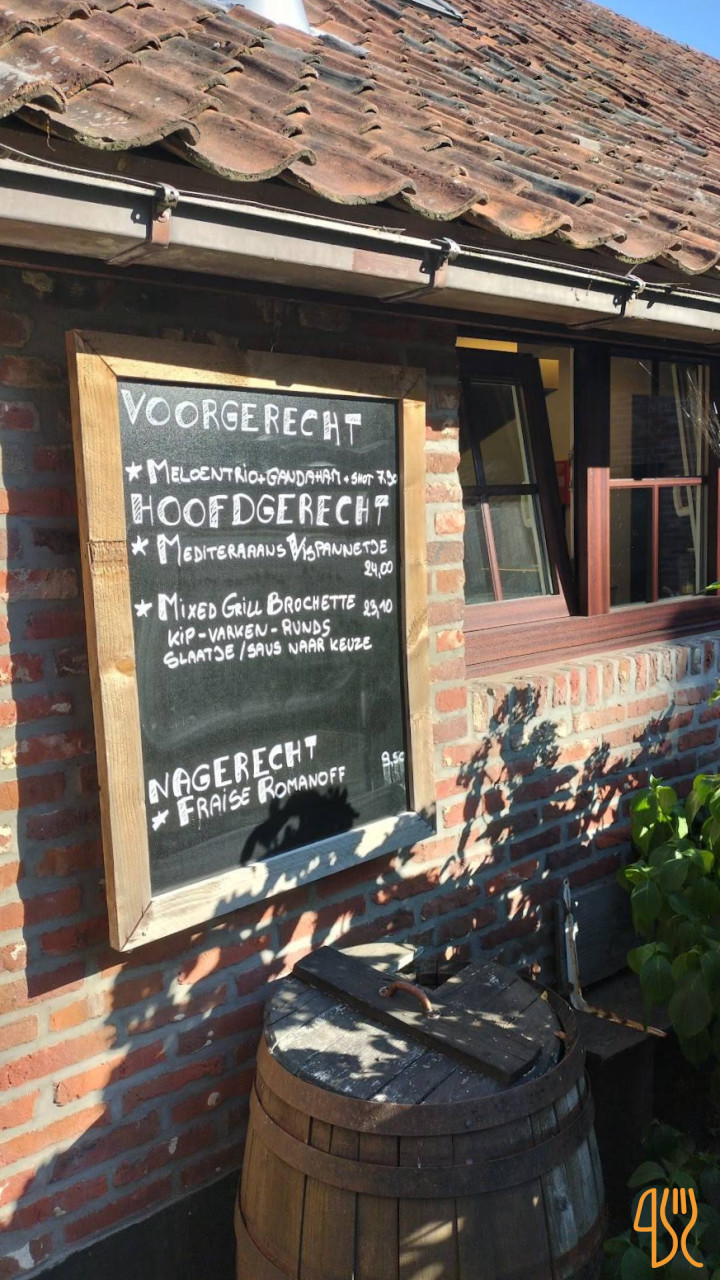 VOORGERECHT
★ MELOENTRIO+GANDAHAM+SHOT 7.90
HOOFDGERECHT
★ MEDITERAAANS VISPANNETJE
24,00
★ MIXED GRILL BROCHETTE 23,10
KIP-VARKEN-RUNDS
SLAATJE/SAUS NAAR KEUZE
NAGERECHT 9.50
★ FRAISE ROMANOFF